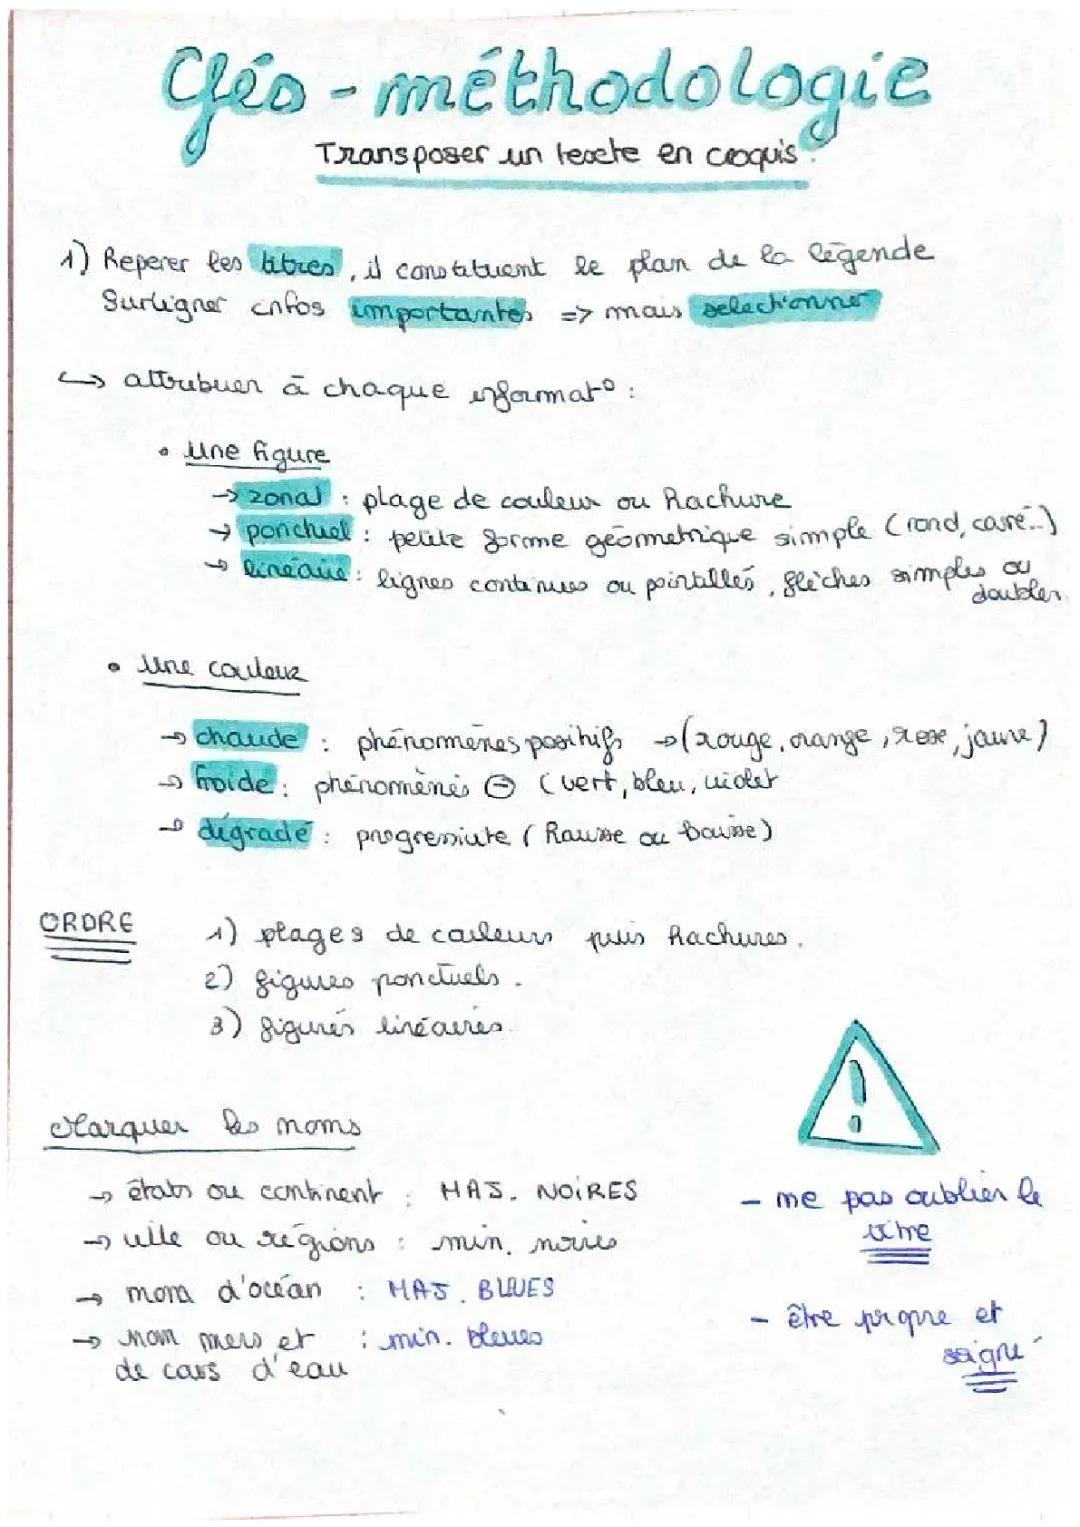 Géo - méthodologie
Transposer un texte en croquis.
1) Reperer les titres, il constituent le plan de la légende
Surligner infos importantes => mais selectionner
↳ attribuer à chaque informat° :
• Une figure
→ zonal : plage de couleur ou hachure
→ ponctuel : petite forme géométrique simple (rond, carré...)
→ linéaire : lignes continues ou pointillés, flèches simples ou doubles.
• Une couleur
→ chaude : phénomènes positifs → (rouge, orange, rose, jaune)
→ froide : phénomènes ⊖ (vert, bleu, violet
→ dégradé : progressivité (hausse ou baisse)
ORDRE
1) plages de couleurs puis hachures.
2) figures ponctuels.
3) figurés linéaires.
Marquer les noms
→ états ou continent : MAJ. NOIRES
→ ville ou régions : min. noires
→ nom d'océan : MAJ. BLEUES
→ nom mers et : min. bleues
de cours d'eau
!
- ne pas oublier le
titre
- être propre et
soigné